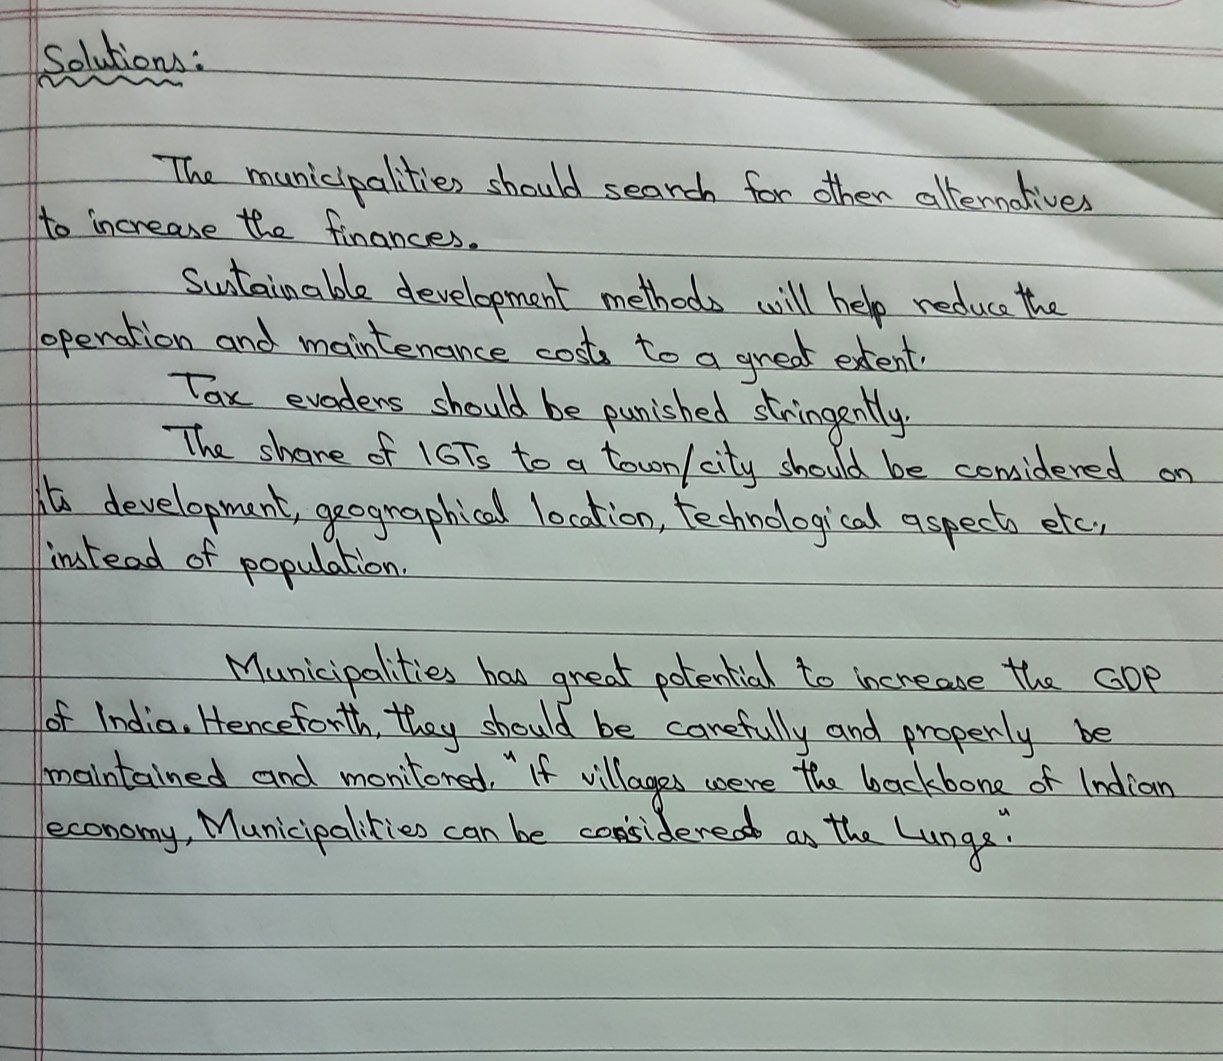 Solutions:
The municipalities should search for other alternatives
to increase the finances.
Sustainable development methods will help reduce the
operation and maintenance costs to a great extent.
Tax evaders should be punished stringently.
The share of IGTs to a town/city should be considered on
its development, geographical location, technological aspects etc.,
instead of population.
Municipalities has great potential to increase the GDP
of India. Henceforth, they should be carefully and properly be
maintained and monitored. "If villages were the backbone of Indian
economy, Municipalities can be considered as the Lungs".